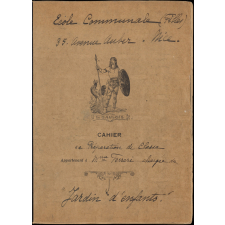 Ecole Communale (Filles)
38. Avenue Auber. Nice.
CAHIER
de Préparation de Classe
appartenant à Mlle Ferrère chargée du
"Jardin d'enfants."